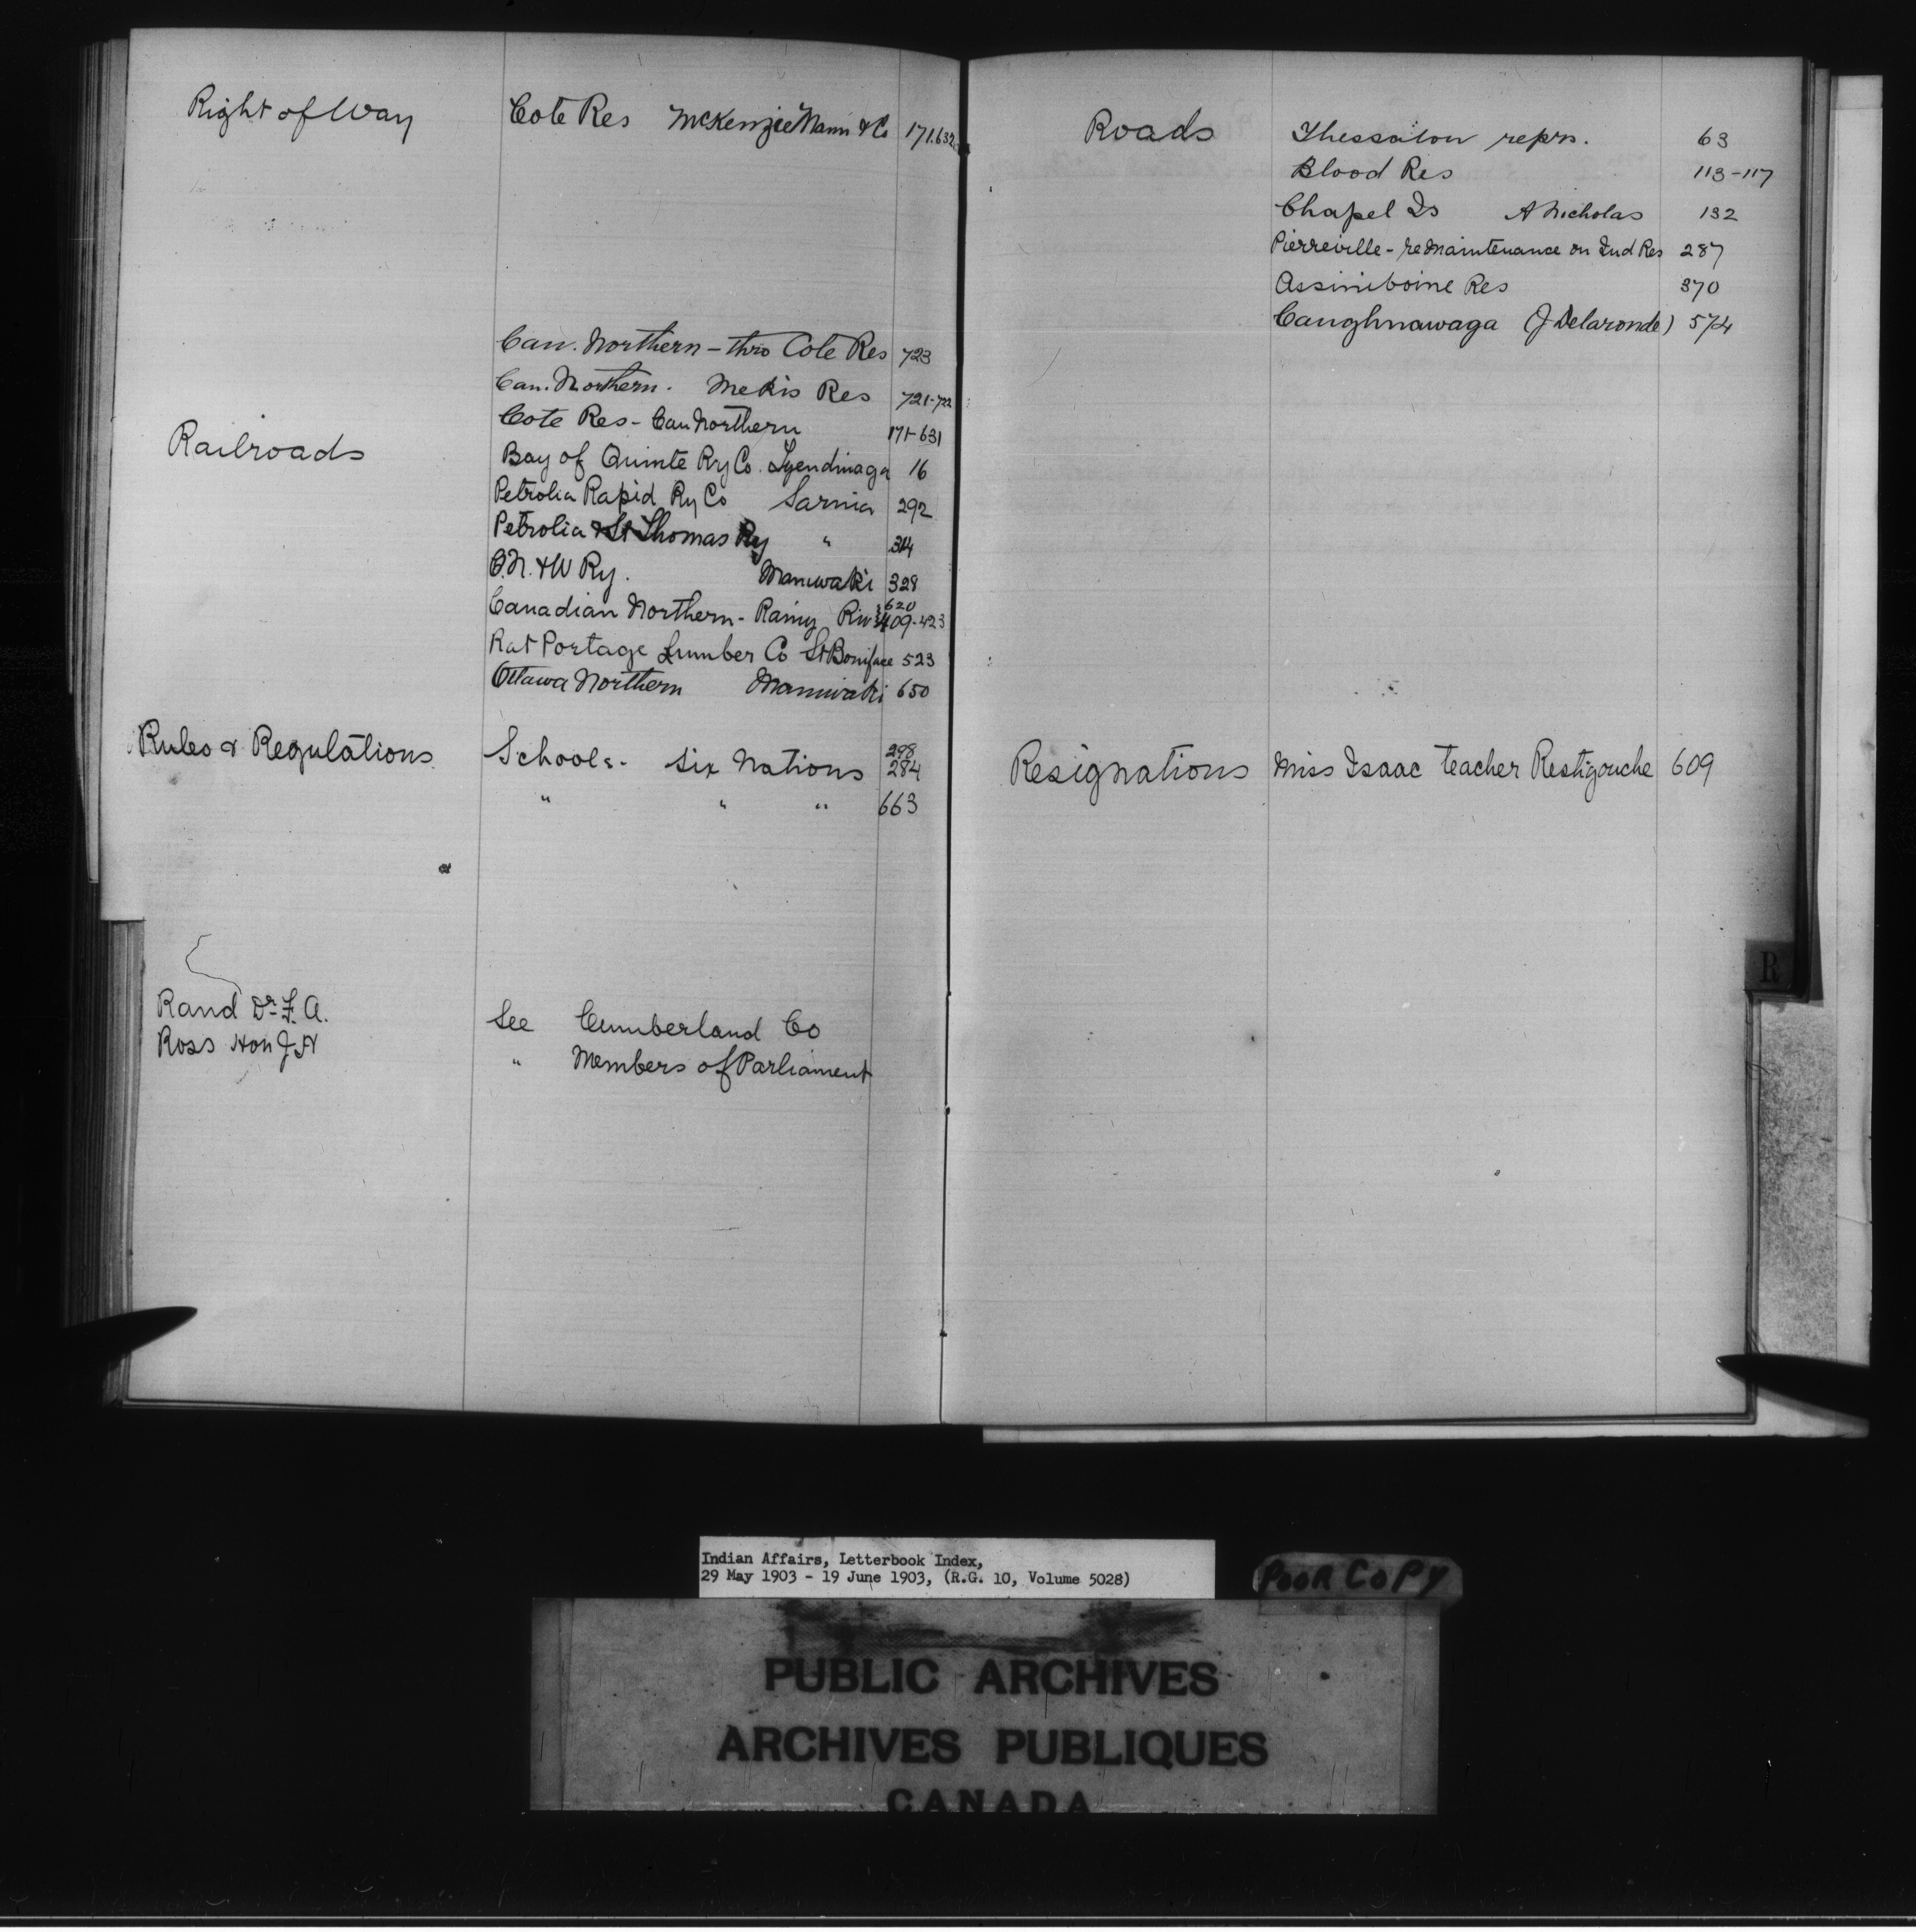 Right of Way Cote Res McKenzie Mann & Co 171.632
Can. Northern - thro Cote Res 723
Can. Northern. Mekis Res 721-722
Cote Res - Can Northern 171-631
Railroads
Bay of Quinte Ry Co. Tyendinaga 16
Petrolia Rapid Ry Co Sarnia 292
Petrolia & St Thomas Ry " 314
O.N. & W Ry. Maniwaki 328
620
Canadian Northern - Rainy Riv 409-423
Rat Portage Lumber Co St Boniface 523
Ottawa Northern Maniwaki 650
298
Rules & Regulations Schools - Six Nations 284
" " " 663
Rand Dr. F. A. See Cumberland Co
Ross Hon J H " Members of Parliament
Roads Thessalon reprs. 63
Blood Res 113-117
Chapel Is A Nicholas 132
Pierreville - re Maintenance on Ind Res 287
Assiniboine Res 370
Caughnawaga (J Delaronde) 574
Resignations Miss Isaac teacher Restigouche 609
R
Indian Affairs, Letterbook Index,
29 May 1903 - 19 June 1903, (R.G. 10, Volume 5028)
POOR COPY
PUBLIC ARCHIVES
ARCHIVES PUBLIQUES
CANADA